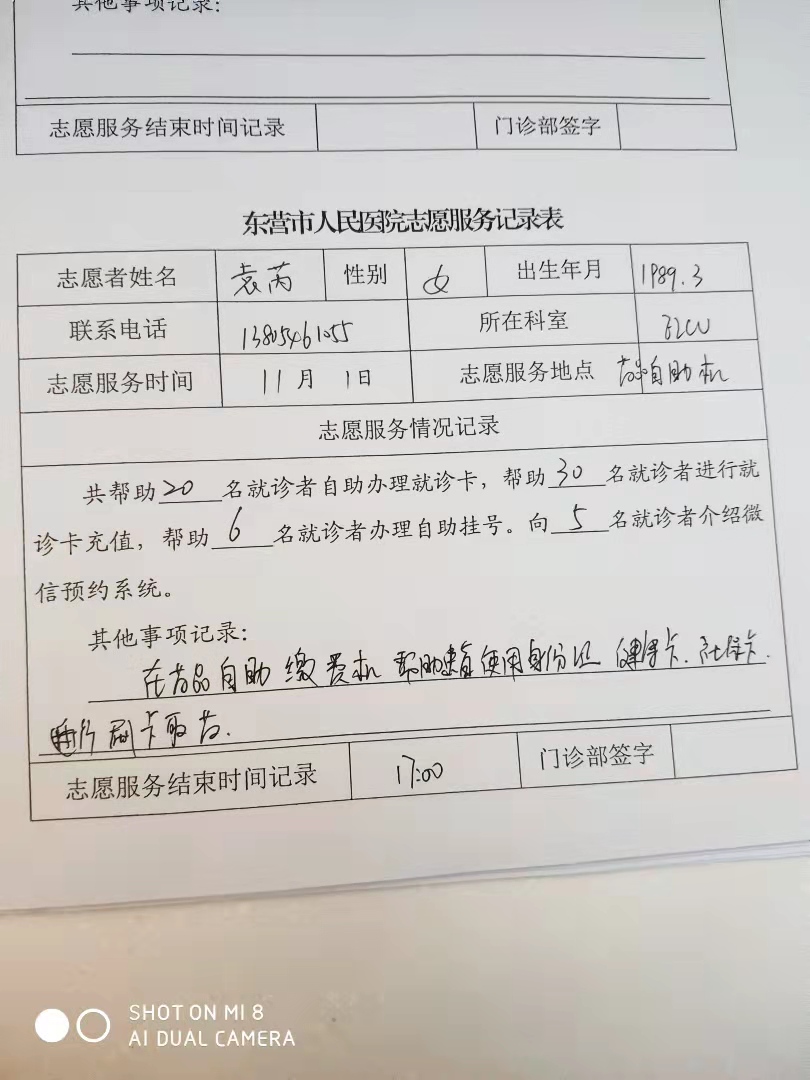 其他事项记录:
志愿服务结束时间记录 门诊部签字
东营市人民医院志愿服务记录表
志愿者姓名 袁芮 性别 女 出生年月 1989.3
联系电话 13805461055 所在科室
志愿服务时间 11月 1日 志愿服务地点 药品自助机
志愿服务情况记录
共帮助20名就诊者自助办理就诊卡，帮助30名就诊者进行就
诊卡充值，帮助6名就诊者办理自助挂号。向5名就诊者介绍微
信预约系统。
其他事项记录:
在药品自助缴费机帮助患者使用身份证、健康卡、社保卡
进行刷卡取药.
志愿服务结束时间记录 17:00 门诊部签字
SHOT ON MI 8
AI DUAL CAMERA